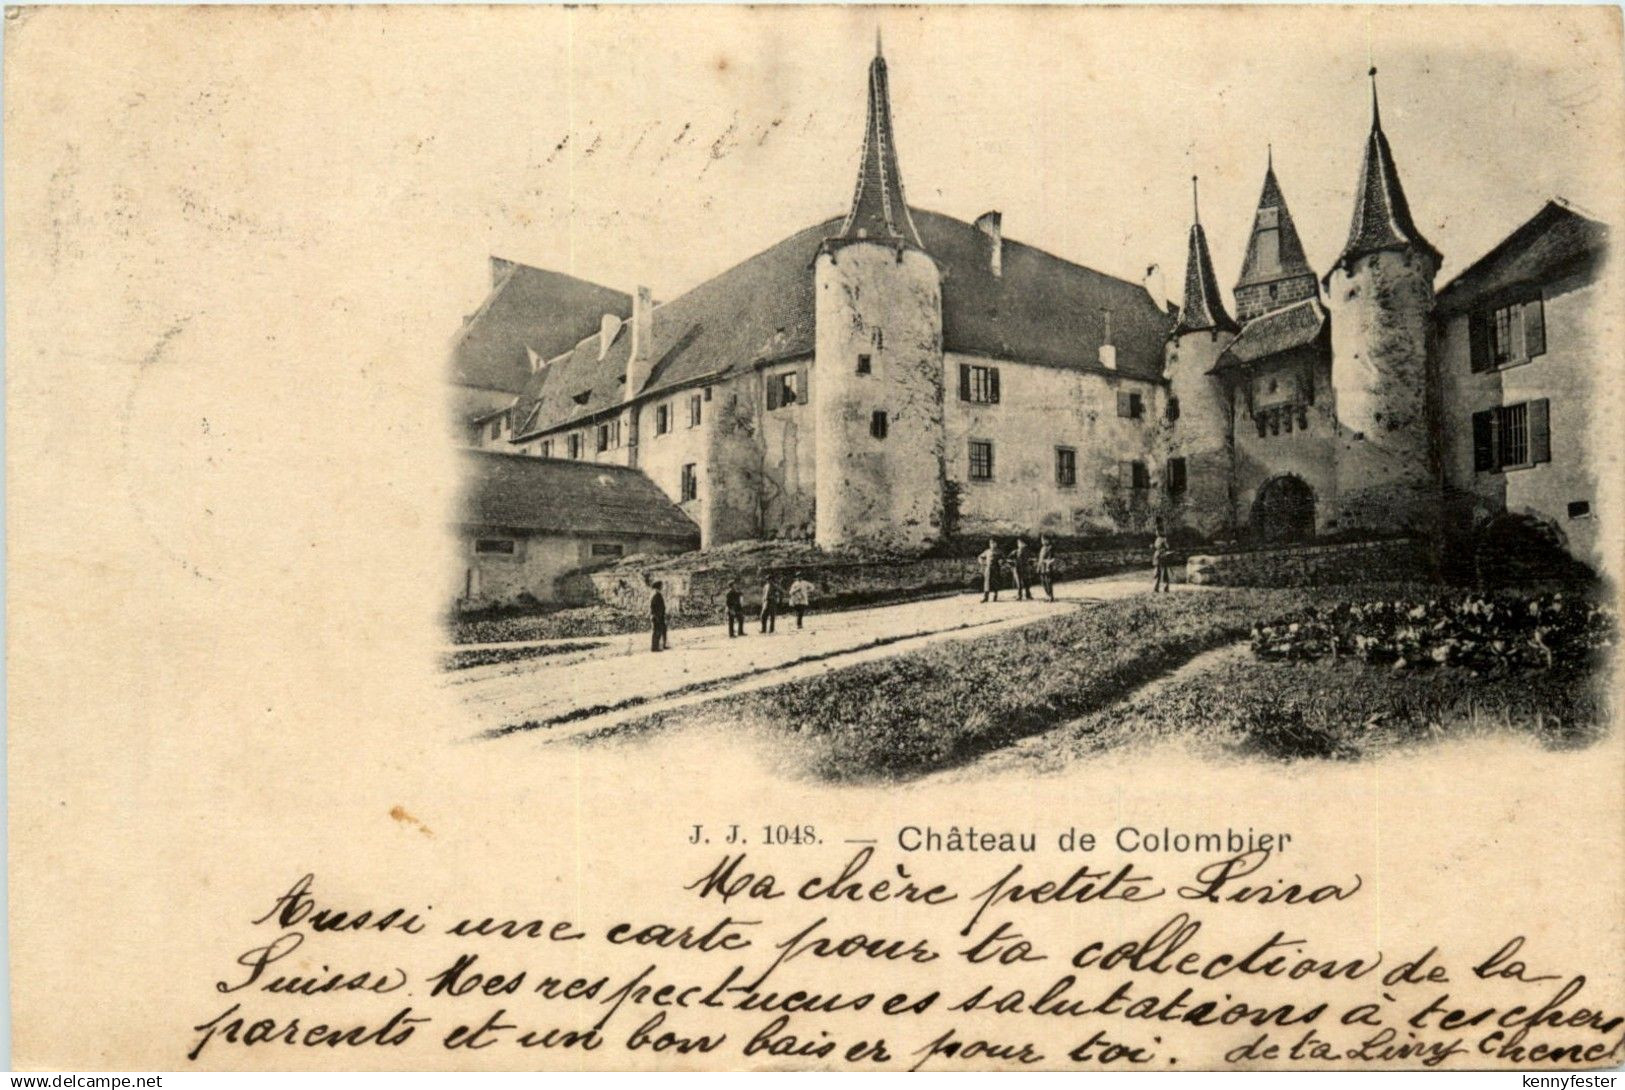 J. J. 1048. — Château de Colombier
Ma chère petite
Aussi une carte pour ta collection de la
Suisse. Mes respectueuses salutations à tes chers
parents et un bon baiser pour toi. de ta
delcampe.net
kennyfester